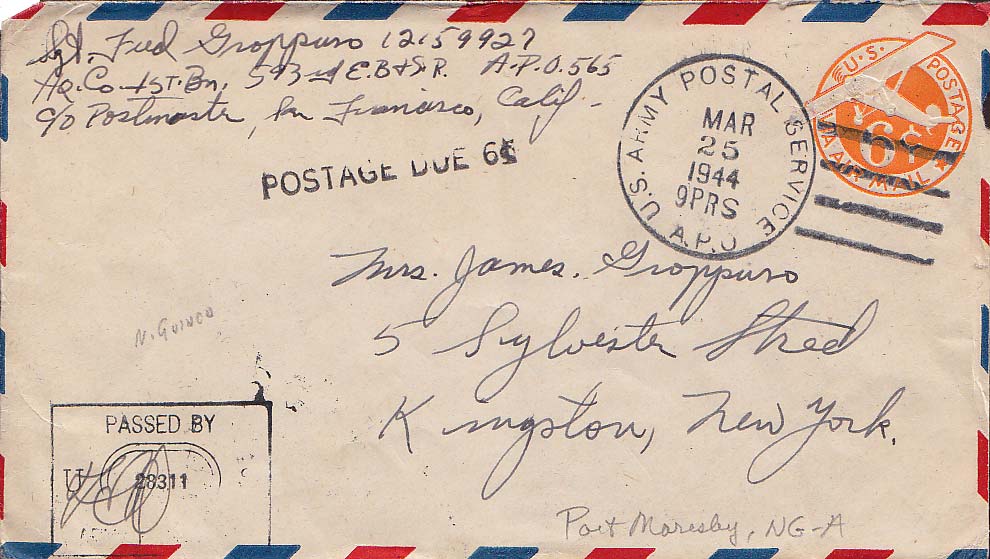 Sgt. Fred Groppuso 12159927
Hq. Co. 1st. Bn, 593rd E.B.&S.R. A.P.O. 565
c/o Postmaster, San Francisco, Calif.
POSTAGE DUE 6¢
U.S. ARMY POSTAL SERVICE
A.P.O
MAR
25
1944
9PRS
U.S. POSTAGE
6¢
VIA AIR MAIL
Mrs. James. Groppuso
5 Sylvester Street
Kingston, New York.
N. Guinea
PASSED BY
28311
Port Moresby, NG-A